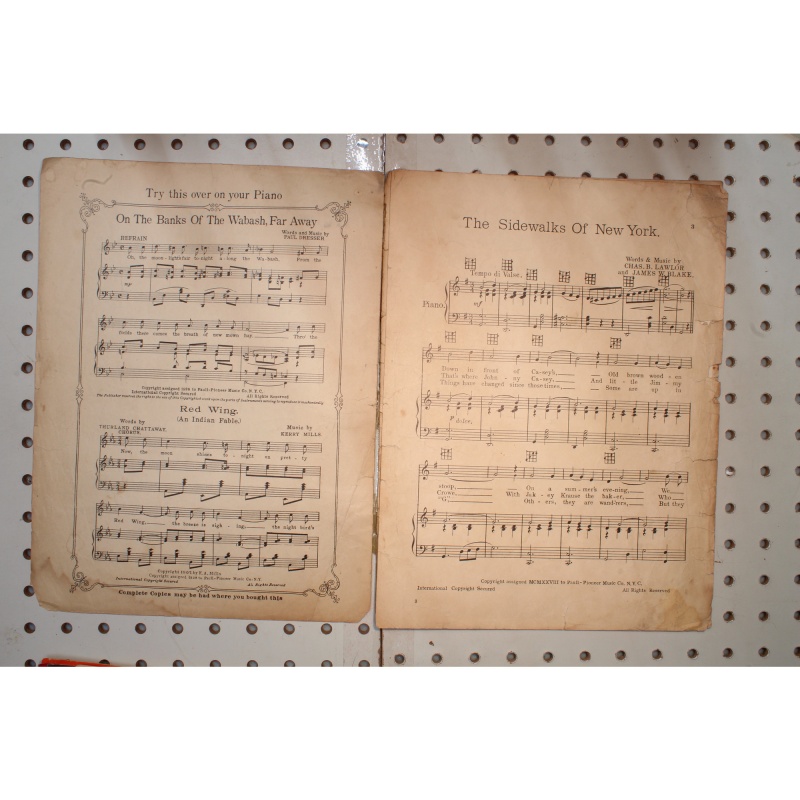 Try this over on your Piano
On The Banks Of The Wabash, Far Away
Words and Music by
PAUL DRESSER
REFRAIN
Oh, the moon-light's fair to-night a-long the Wa-bash, From the
fields there comes the breath of new mown hay Thro' the
Copyright assigned to Paull-Pioneer Music Co. N.Y.C.
International Copyright Secured
All Rights Reserved
Red Wing.
(An Indian Fable.)
Words by
THURLAND CHATTAWAY.
Music by
KERRY MILLS.
CHORUS.
Now, the moon shines to-night on pret-ty
Red Wing, the breeze is sigh-ing, the night bird's
Copyright by F. A. Mills
Copyright assigned to Paull-Pioneer Music Co. N.Y.
International Copyright Secured
All Rights Reserved
Complete Copies may be had where you bought this
3
The Sidewalks Of New York.
Words & Music by
CHAS. B. LAWLOR
and JAMES W. BLAKE.
Tempo di Valse.
Piano.
mf
Down in front of Ca-sey's, Old brown wood-en
That's where John-ny Ca-sey, And lit-tle Jim-my
Things have changed since those times, Some are up in
P dolce.
stoop, On a sum-mer's eve-ning, We
Crowe, With Jak-ey Krause the bak-er, Who
"G," Oth-ers, they are wand'rers, But they
Copyright assigned MCMXXVIII to Paull-Pioneer Music Co. N.Y.C.
International Copyright Secured
All Rights Reserved